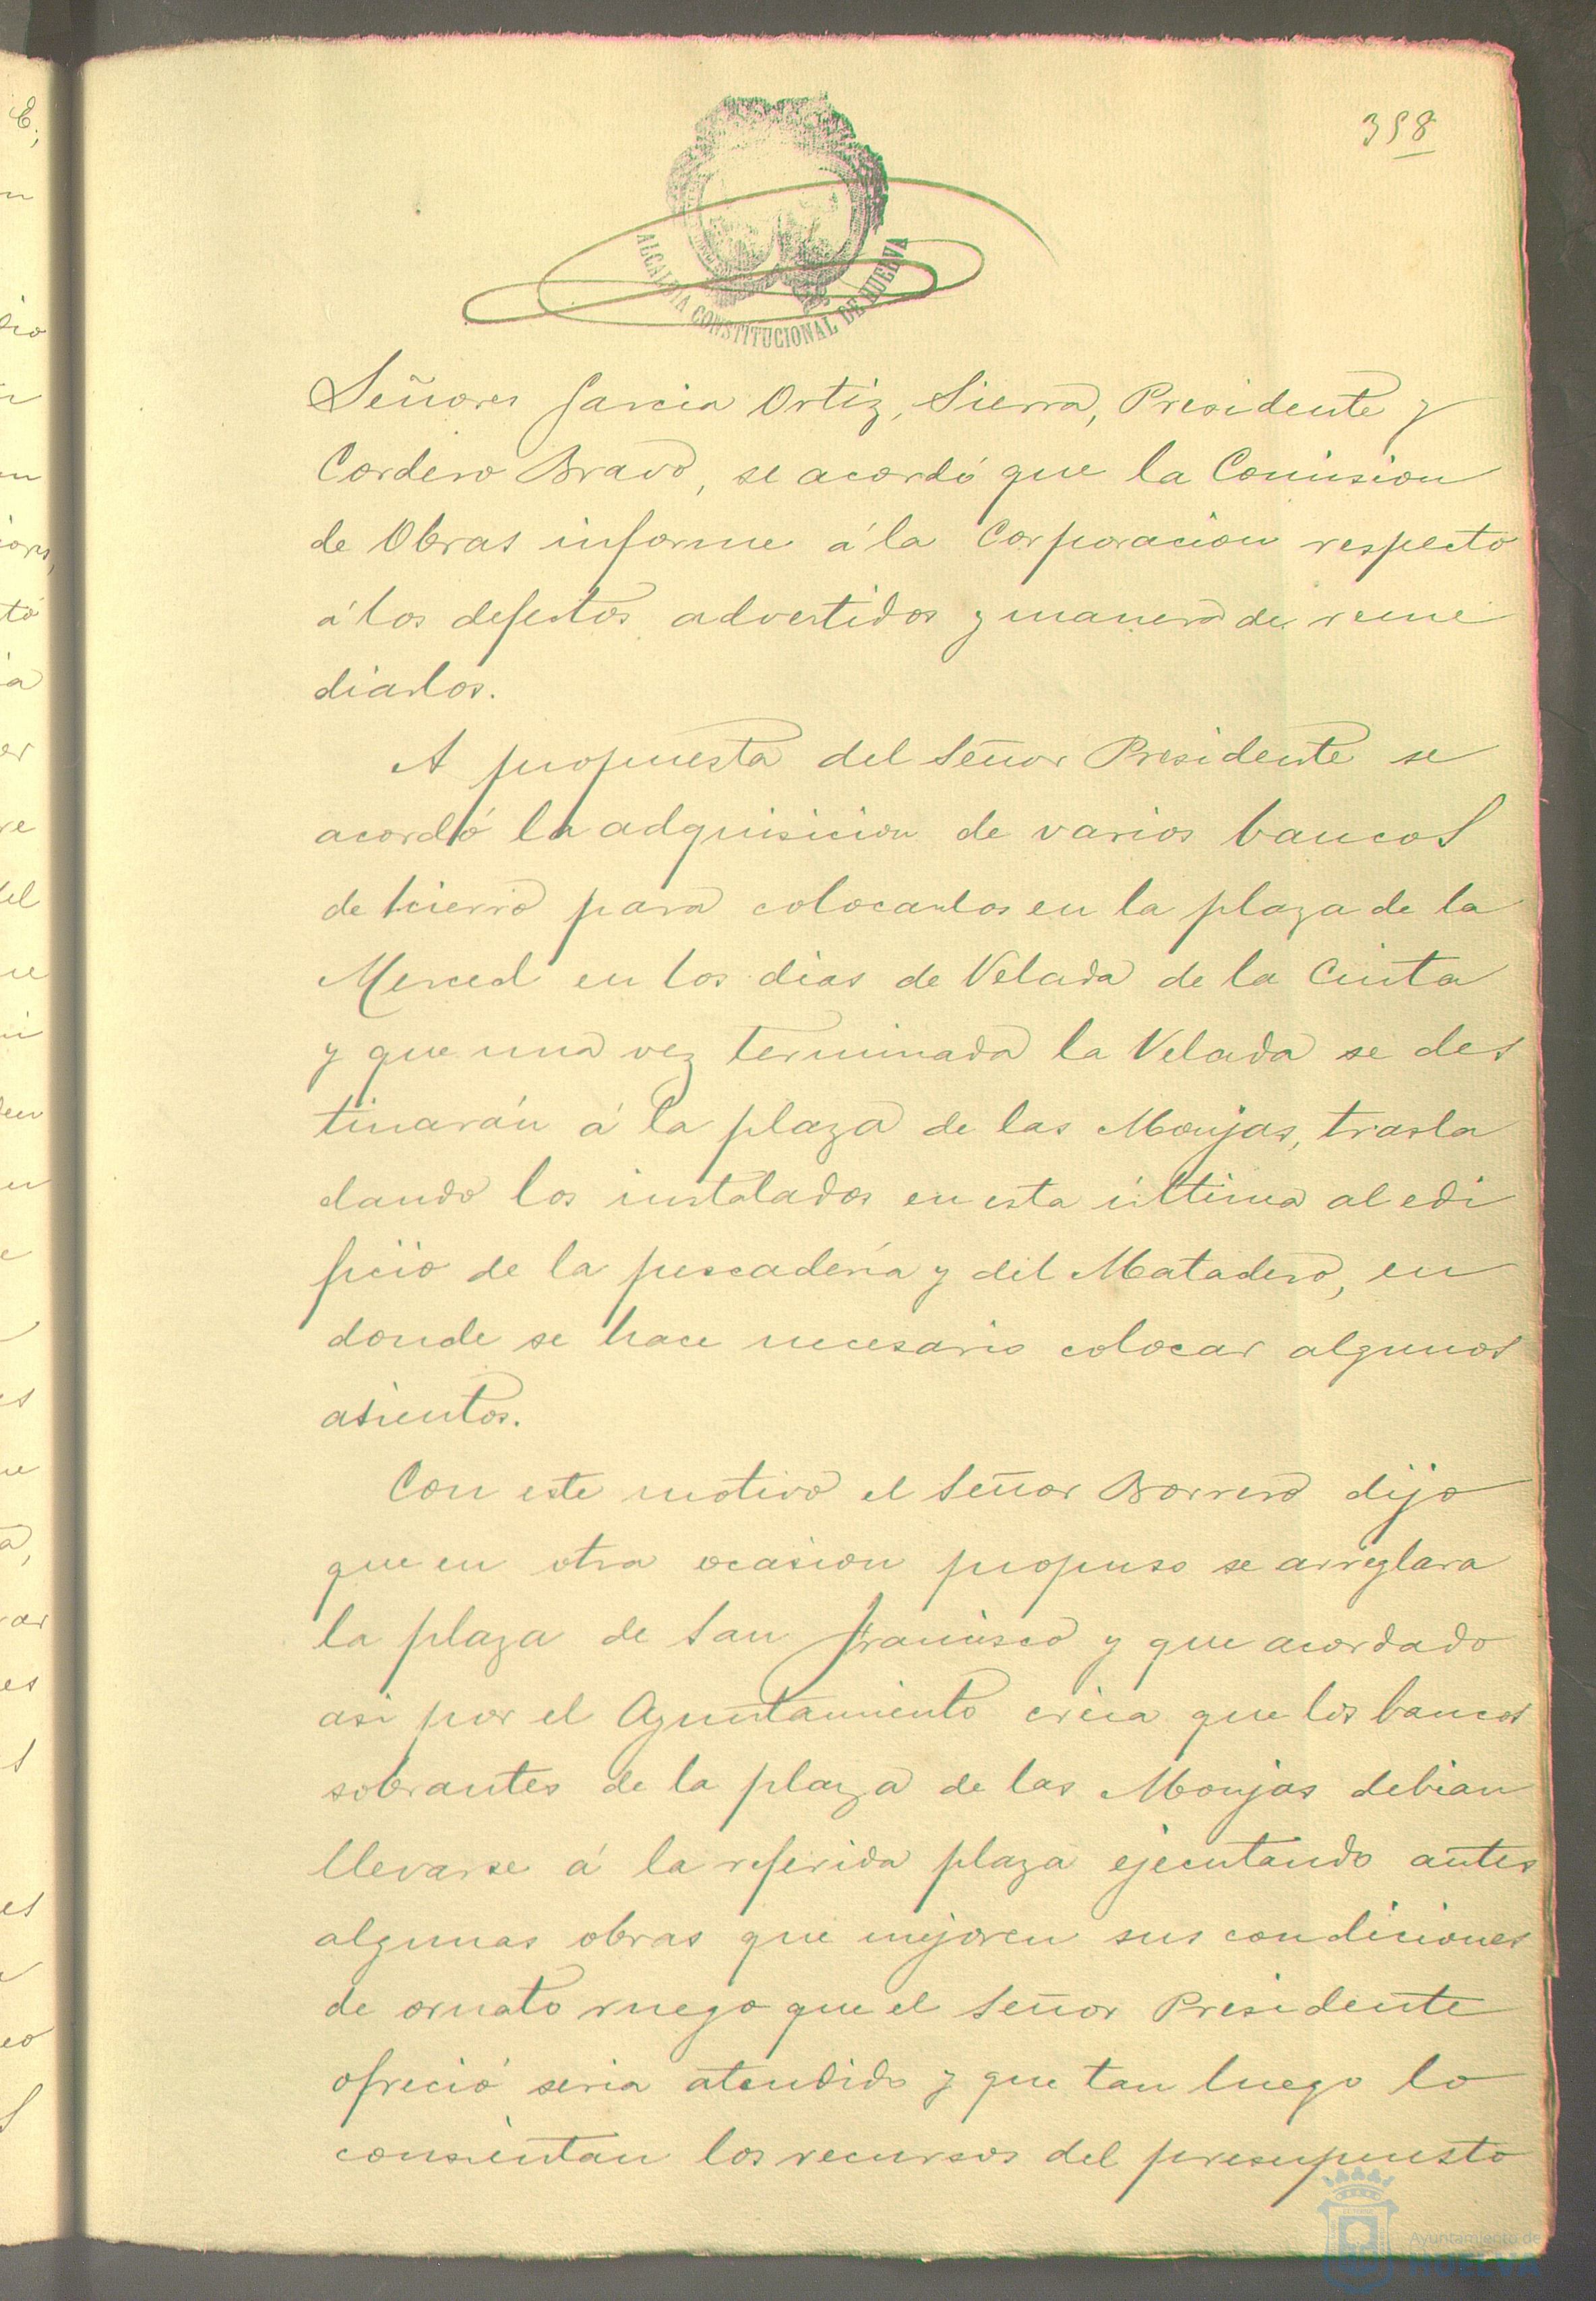 358
ALCALDIA CONSTITUCIONAL DE HUELVA
Señores Garcia Ortiz, Sierra, Presidente y
Cordero Bravo, se acordó que la Comision
de Obras informe á la Corporacion respecto
á los defectos advertidos y manera de reme
diarlos.
A propuesta del Señor Presidente se
acordó la adquisicion de varios bancos
de hierro para colocarlos en la plaza de la
Merced en los dias de Velada de la Cinta
y que una vez terminada la Velada se des
tinarán á la plaza de las Monjas, trasla
dando los instalados en esta última al edi
ficio de la pescadería y del Matadero, en
donde se hace necesario colocar algunos
asientos.
Con este motivo el Señor Borrero dijo
que en otra ocasion propuso se arreglara
la plaza de San Francisco y que acordado
asi por el Ayuntamiento creia que los bancos
sobrantes de la plaza de las Monjas debian
llevarse á la referida plaza ejecutando antes
algunas obras que mejoren sus condiciones
de ornato ruego que el Señor Presidente
ofreció seria atendido y que tan luego lo
consientan los recursos del presupuesto
Ayuntamiento de
HUELVA